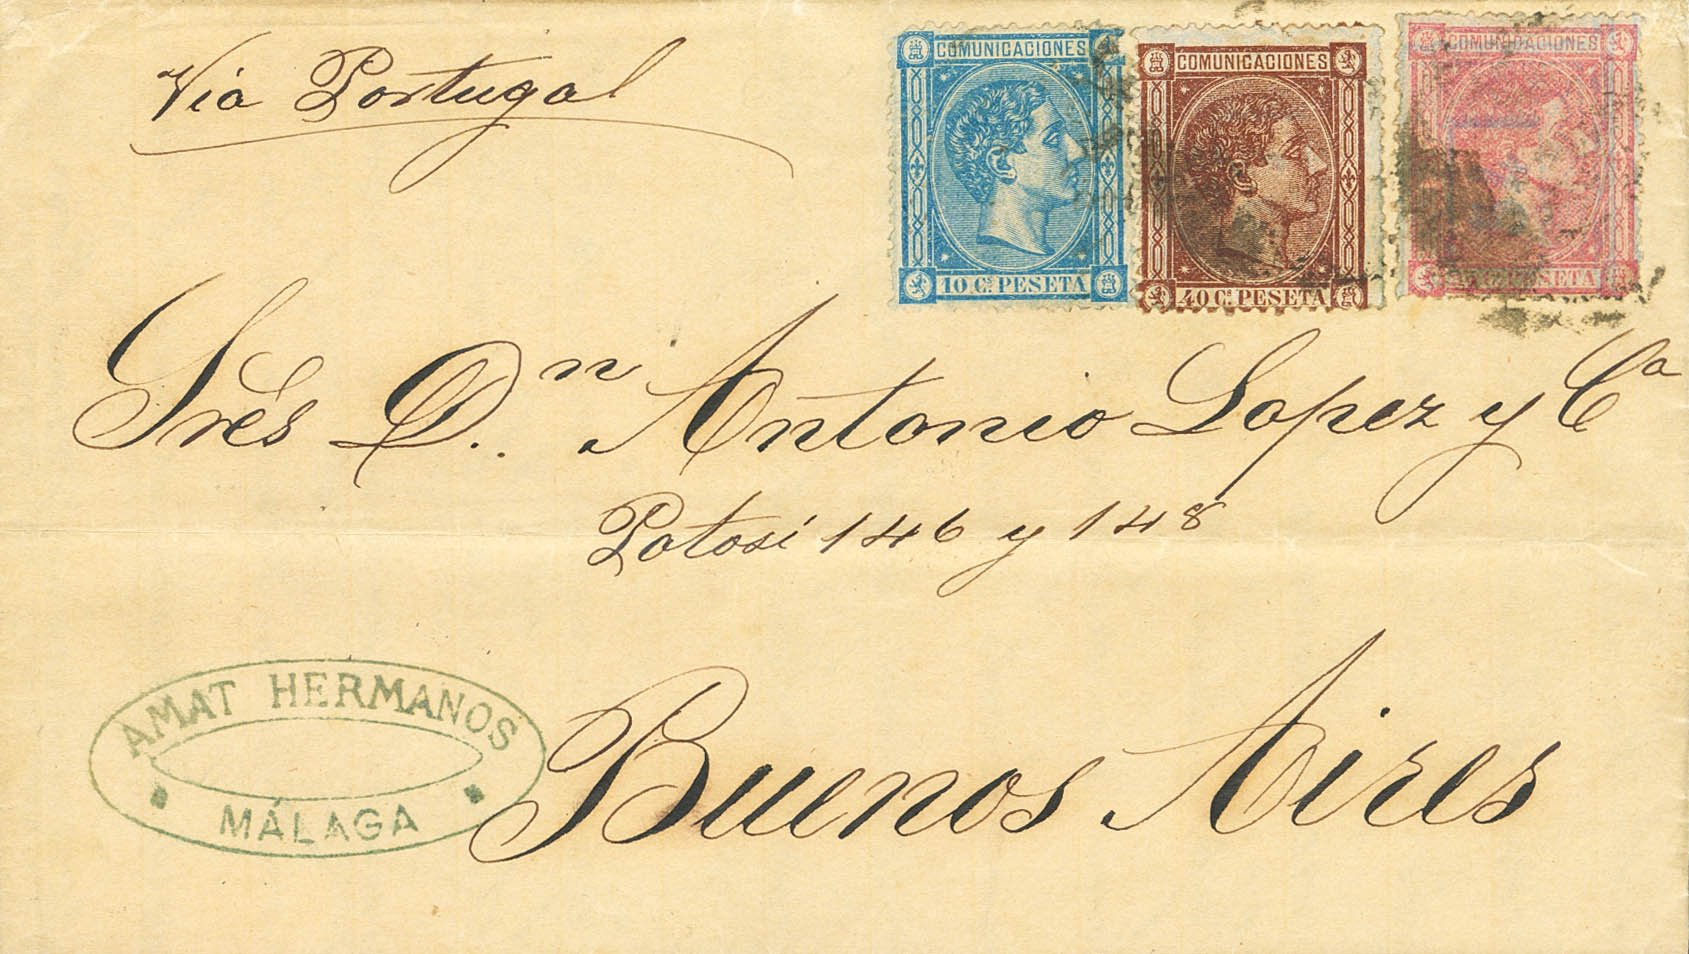 Via Portugal
COMUNICACIONES
10 Cs PESETA
COMUNICACIONES
40 Cs PESETA
COMUNICACIONES
PESETA
Srēs D.n Antonio Lopez y Ca
Potosí 146 y 148
Buenos Aires
AMAT HERMANOS
MÁLAGA